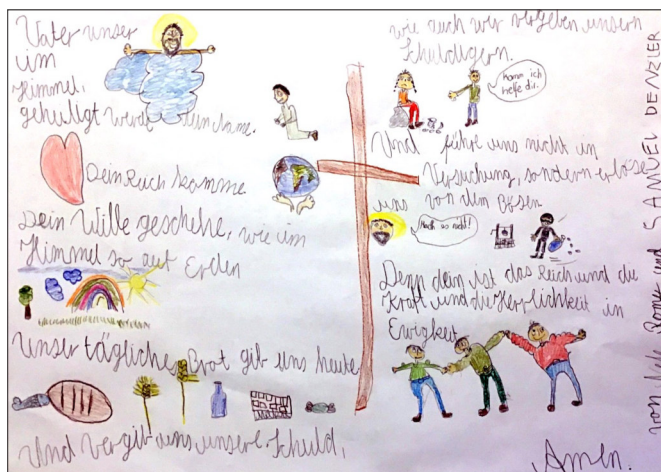 Vater unser
im
Himmel,
geheiligt werde dein Name.
Dein Reich komme
Dein Wille geschehe, wie im
Himmel so auf Erden
Unser tägliches Brot gib uns heute
Und vergib uns unsere Schuld,
wie auch wir vergeben unsern
Schuldigern.
komm ich
helfe dir.
Und führe uns nicht in
Versuchung, sondern erlöse
uns von dem Bösen
Mach es nicht!
Denn dein ist das Reich und die
Kraft und die Herrlichkeit in
Ewigkeit
Amen.
von und SAMUEL DENZLER